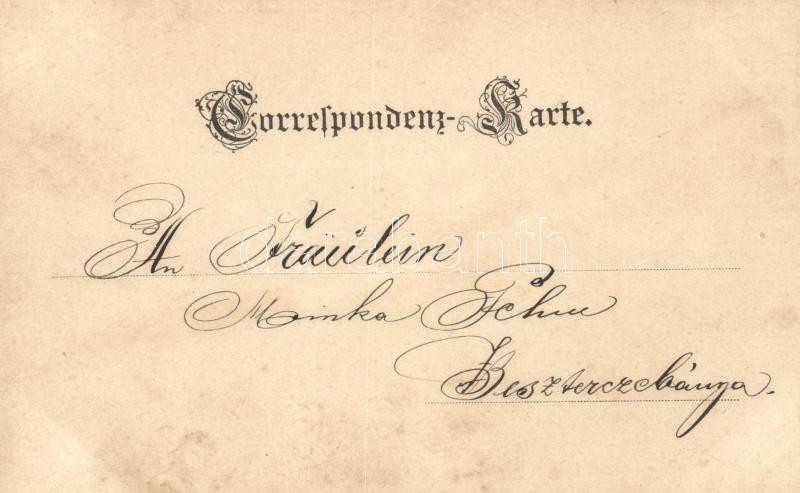 Correspondenz-Karte.
An Fräulein
Minka
Beszterczebánya.
darabanth